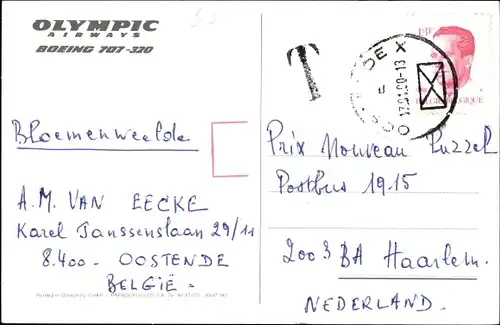 OLYMPIC
AIRWAYS
BOEING 707-320
Bloemenweelde
A.M. VAN EECKE
Karel Janssenslaan 29/11
8.400 - OOSTENDE
BELGIË -
T
13F
BELGIE-BELGIQUE
Prix Nouveau Puzzel
Postbus 1915
2003 BA Haarlem.
NEDERLAND.